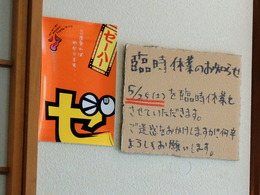 ゼーハー
ゼ
臨時休業のおしらせ
5/25(土)を臨時休業と
させていただきます。
ご迷惑をおかけしますが何卒
よろしくお願いします。